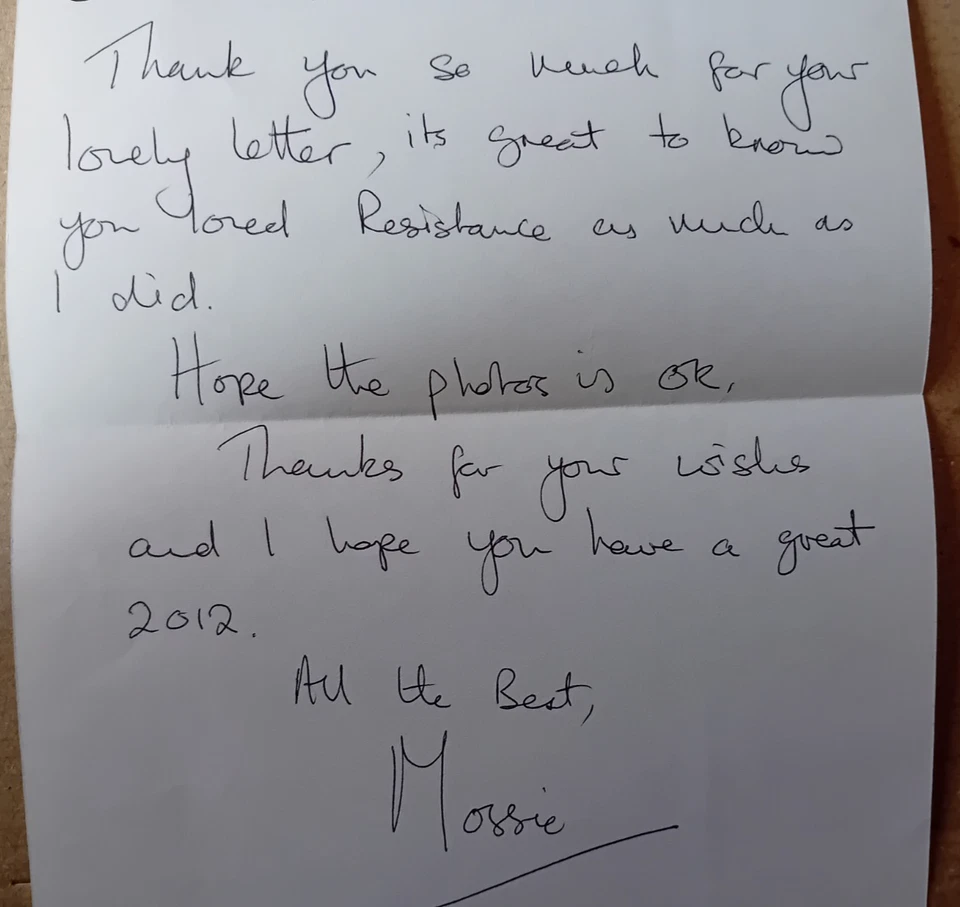 Thank you so much for your
lovely letter, its great to know
you loved Resistance as much as
I did.
Hope the photos is OK,
Thanks for your wishes
and I hope you have a great
2012.
All the Best,
Mossie